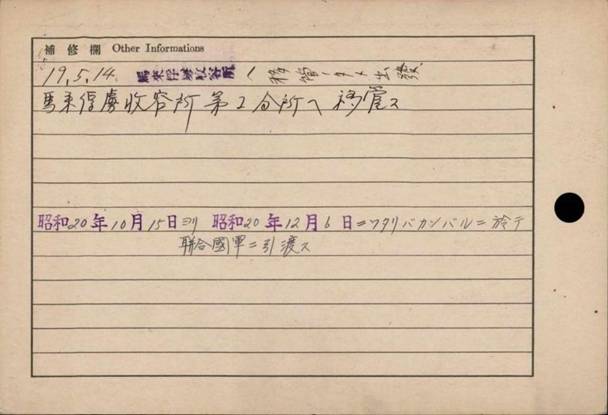 補修欄 Other Informations
19.5.14. 馬来俘虜収容所ヘ移管ノタメ出発
馬来俘虜收容所第2分所ヘ移管ス
昭和20年10月15日ヨリ 昭和20年12月6日ニワタリバカンバルニ於テ
聯合國軍ニ引渡ス